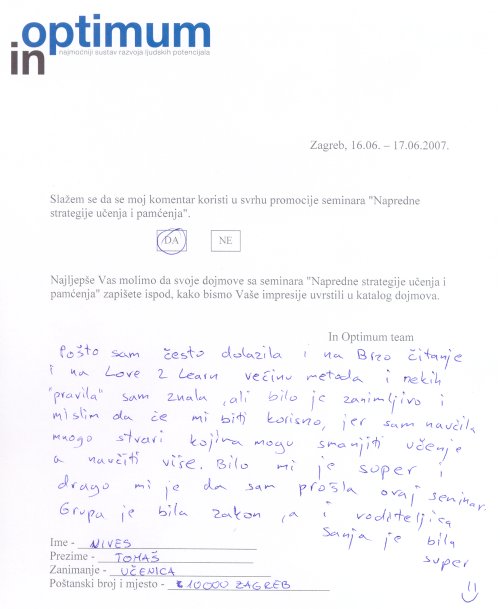 in optimum
najmoćniji sustav razvoja ljudskih potencijala
Zagreb, 16.06. – 17.06.2007.
Slažem se da se moj komentar koristi u svrhu promocije seminara "Napredne
strategije učenja i pamćenja".
DA NE
Najljepše Vas molimo da svoje dojmove sa seminara "Napredne strategije učenja i
pamćenja" zapišete ispod, kako bismo Vaše impresije uvrstili u katalog dojmova.
In Optimum team
Pošto sam često dolazila i na Brzo čitanje
i na Love 2 Learn većinu metoda i nekih
"pravila" sam znala, ali bilo je zanimljivo i
mislim da će mi biti korisno, jer sam naučila
mnogo stvari kojima mogu smanjiti učenje
a naučiti više. Bilo mi je super i
drago mi je da sam prošla ovaj seminar.
Grupa je bila zakon, a i voditeljica
Sanja je bila
super
Ime - NIVES
Prezime - TOMAŠ
Zanimanje - UČENICA
Poštanski broj i mjesto - 10000 ZAGREB